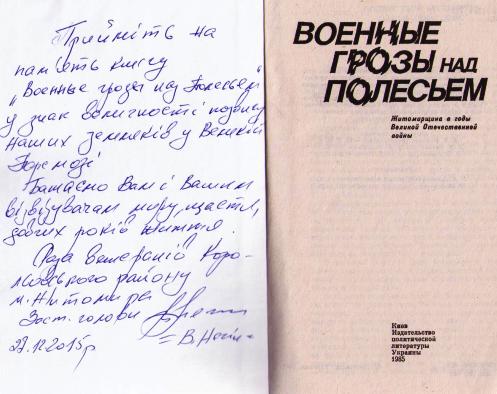 Прийміть на
пам'ять книгу
„Военные грозы над Полесьем"
у знак вдячності подвигу
наших земляків у Великій
Перемозі
Бажаємо Вам і Вашим
відвідувачам миру, щастя,
довгих років життя.
Рада Ветеранів Коро-
льовського району
м. Житомира
Заст. голови
27.12.2015р
ВОЕННЫЕ
ГРОЗЫ НАД
ПОЛЕСЬЕМ
Житомирщина в годы
Великой Отечественной
войны
Киев
Издательство
политической
литературы
Украины
1985